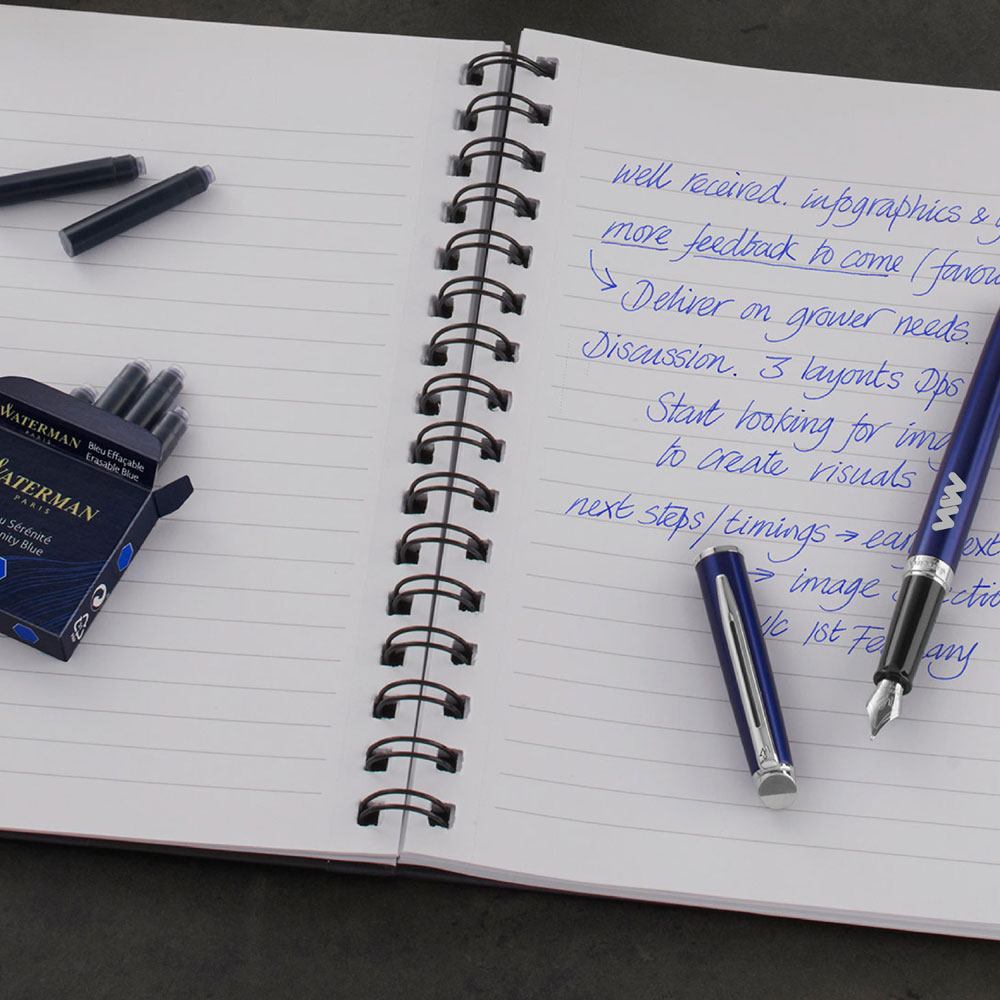 WATERMAN
PARIS
Bleu Effaçable
Erasable Blue
WATERMAN
PARIS
Sérénité
Blue
well received. infographics &
more feedback to come (favou
Deliver on grower needs.
Discussion. 3 layouts Dps
Start looking for ima
to create visuals
next steps/timings → ear ext
→ image ctio
w/c 1st Fe ary